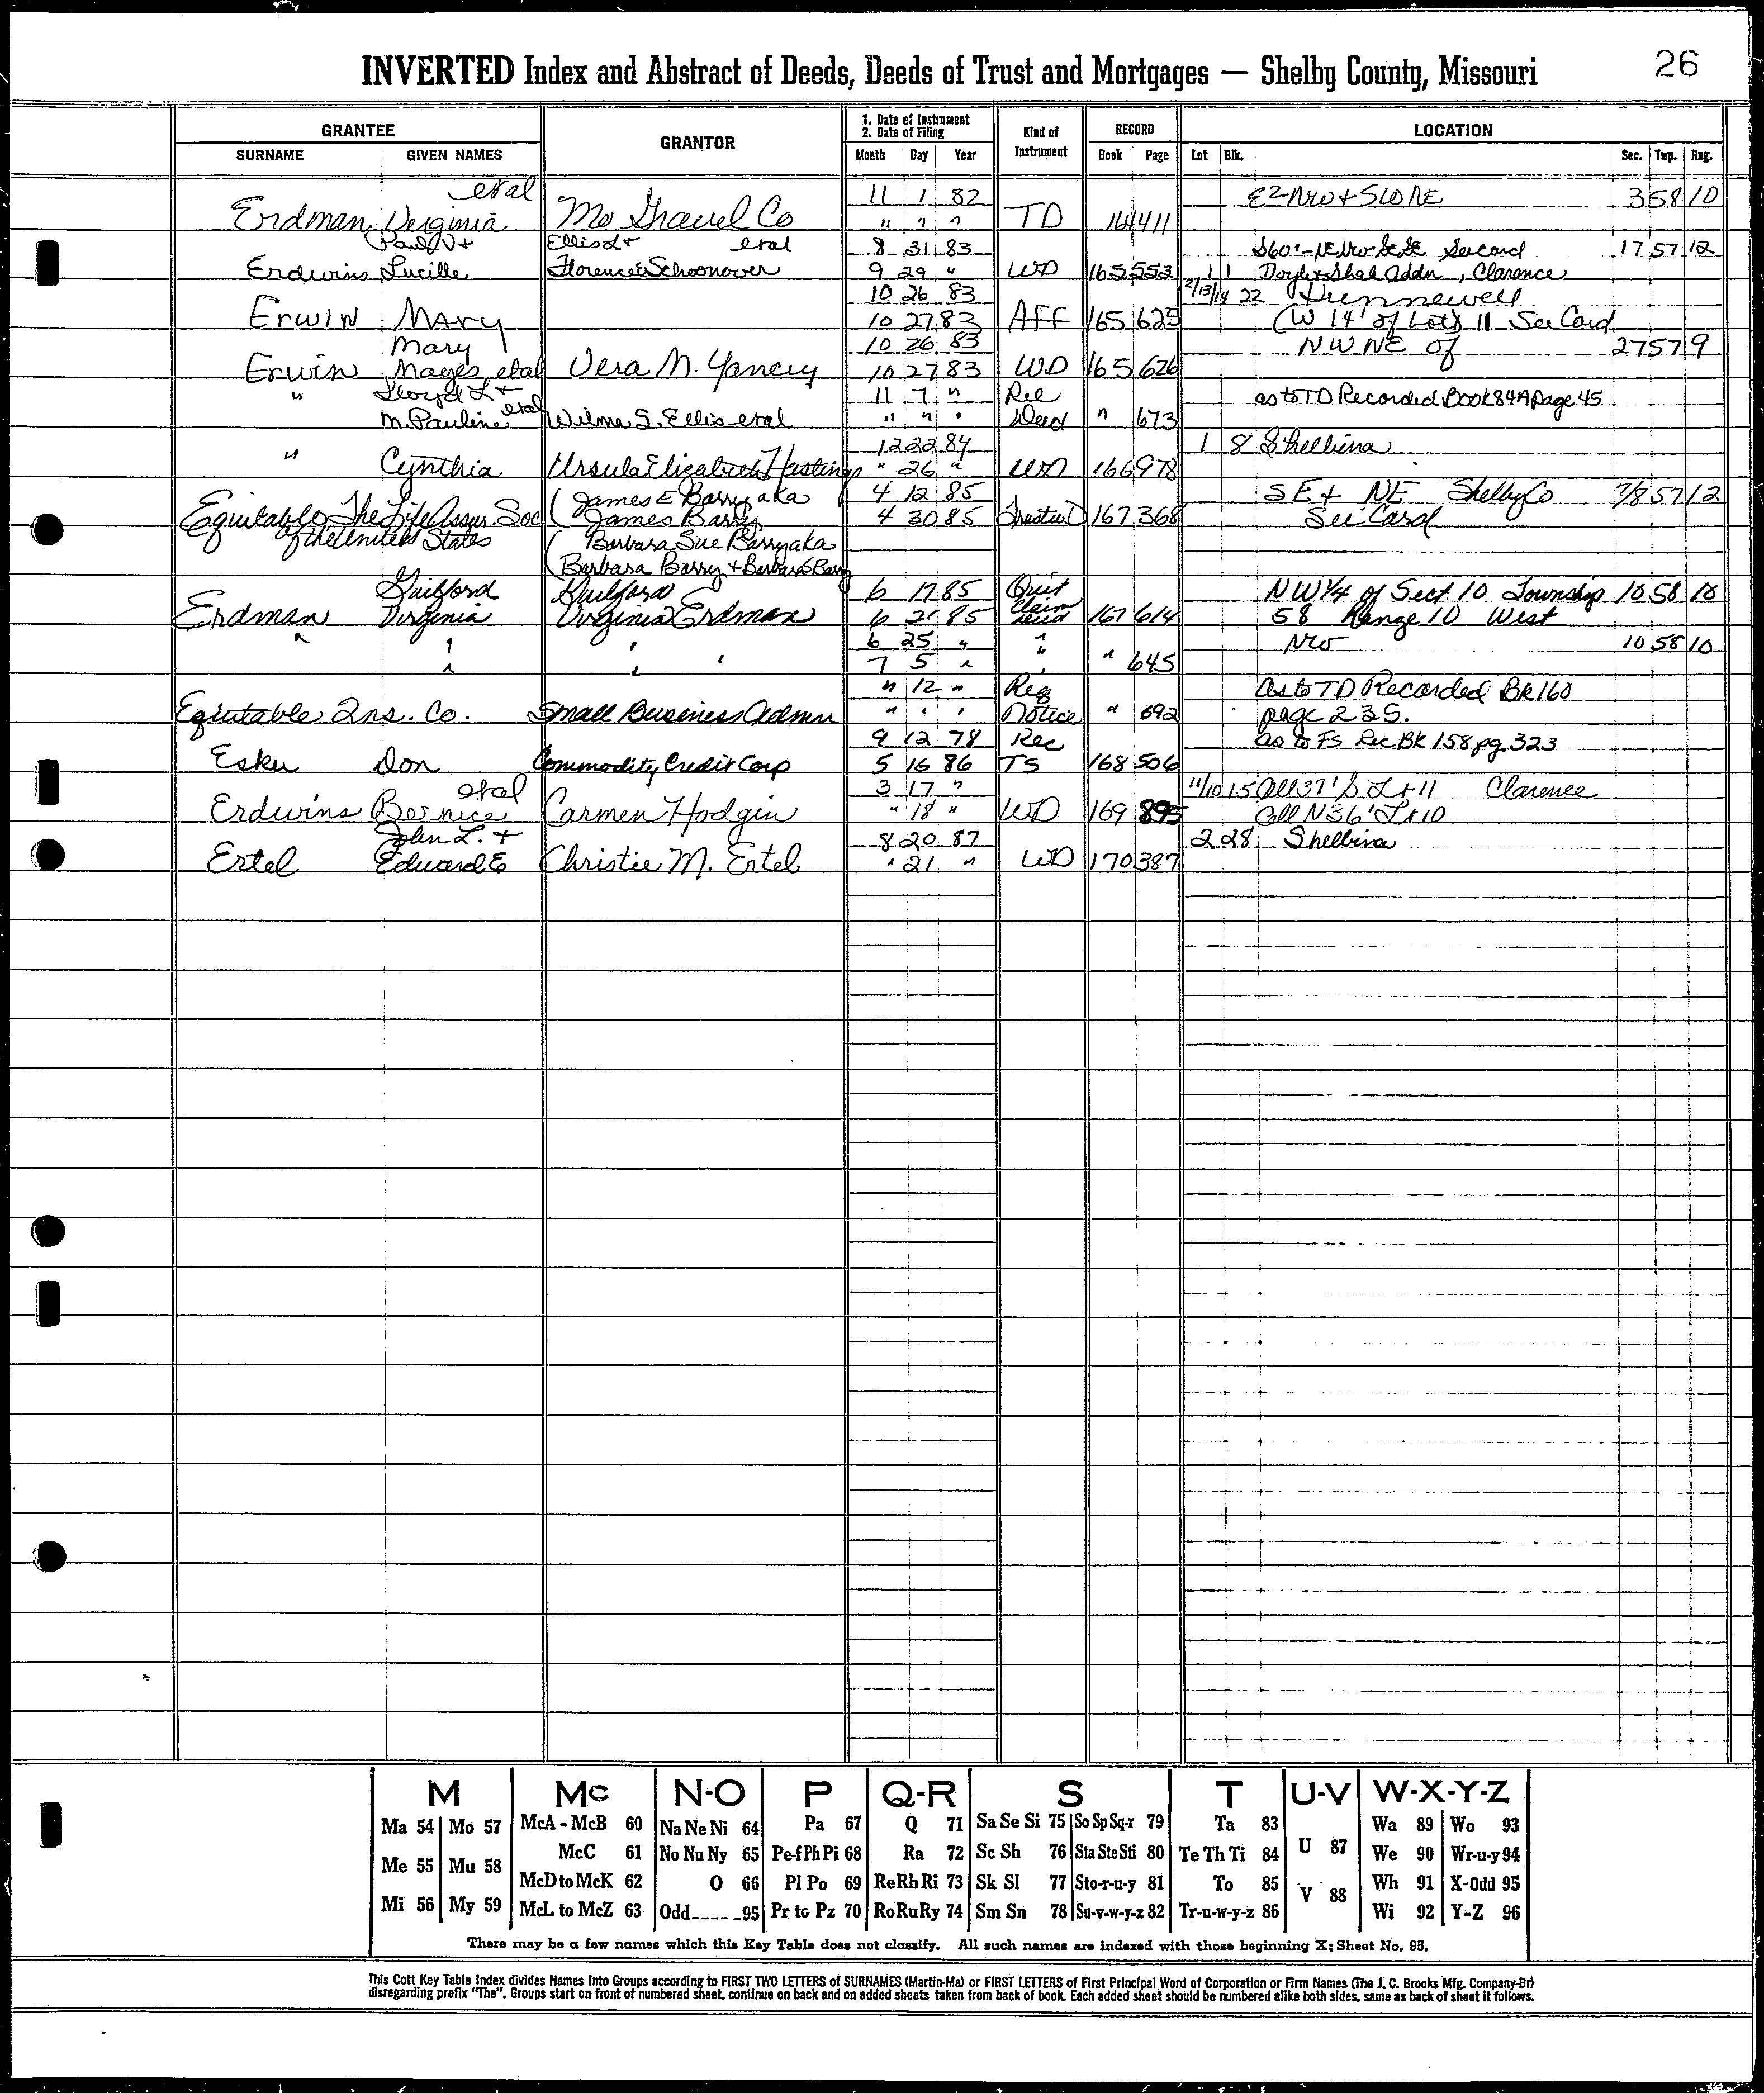 INVERTED Index and Abstract of Deeds, Deeds of Trust and Mortgages — Shelby County, Missouri 26
GRANTEE GRANTOR 1. Date of Instrument 2. Date of Filing Kind of Instrument RECORD LOCATION
SURNAME GIVEN NAMES Month Day Year Book Page Lot Blk. Sec. Twp. Rng.
etal 11 1 82 E2-NW + SWNE 3 58 10
Erdman Virginia Mo Gravel Co " " " TD 164 411
Paul V + Ellis L + etal 8 31 83 S60'- NE NW SE SE See card 17 57 12
Erdwins Lucille Florence E Schoonover 9 29 " WD 165 553 1 1 Doyle + Shal Addn, Clarence
10 26 83 2/13/14 22 Hunnewell
Erwin Mary 10 27 83 Aff 165 625 (W 14' of Lot) 11 See Card
Mary 10 26 83 NWNE of 27 57 9
Erwin Mayes etal Vera N. Yancey 10 27 83 WD 165 626
" Lloyd L + 11 7 " Rel as to TD Recorded Book 84A page 45
M. Pauline etal Wilma S. Ellis etal " " " Deed " 673
12 22 84 1 8 Shelbina
" Cynthia Ursula Elizabeth Hastings " 26 " WD 166 978
(James E Barry aka 4 12 85 SE + NE Shelby Co 7/8 57 12
Equitable The Life Assur. Soc James Barry 4 30 85 Trustee D 167 368 See Card
of the United States (Barbara Sue Barry aka
(Barbara Barry + Barbara S Barry
Guilford Guilford 6 17 85 Quit NW 1/4 of Sect. 10 Township 10 58 10
Erdman Virginia Virginia Erdman 6 21 85 Claim Deed 167 614 58 Range 10 West
" " " 6 25 " " NW 10 58 10
" " " 7 5 " " " 645
" 12 " Req as to TD Recorded Bk 160
Equitable Ins. Co. Small Business Admn " " " Notice " 692 page 235.
9 12 78 Rec as to FS Rec Bk 158 pg 323
Esker Don Commodity Credit Corp 5 16 86 TS 168 506
etal 3 17 " 11/10 15 All 37' S Lt 11 Clarence
Erdwins Bernice Carmen Hodgin " 18 " WD 169 895 All N36' Lt 10
John L. + 8 20 87 2 28 Shelbina
Ertel Edward E Christie M. Ertel " 21 " WD 170 387
M Mc N-O P Q-R S T U-V W-X-Y-Z
Ma 54 Mo 57 McA - McB 60 Na Ne Ni 64 Pa 67 Q 71 Sa Se Si 75 So Sp Sq-r 79 Ta 83 U 87 Wa 89 Wo 93
Me 55 Mu 58 McC 61 No Nu Ny 65 Pe-f Ph Pi 68 Ra 72 Sc Sh 76 Sta Ste Sti 80 Te Th Ti 84 V 88 We 90 Wr-u-y 94
McD to McK 62 O 66 Pl Po 69 Re Rh Ri 73 Sk Sl 77 Sto-r-u-y 81 To 85 Wh 91 X-Odd 95
Mi 56 My 59 McL to McZ 63 Odd 95 Pr to Pz 70 Ro Ru Ry 74 Sm Sn 78 Su-v-w-y-z 82 Tr-u-w-y-z 86 Wi 92 Y-Z 96
There may be a few names which this Key Table does not classify. All such names are indexed with those beginning X; Sheet No. 95.
This Cott Key Table Index divides Names into Groups according to FIRST TWO LETTERS of SURNAMES (Martin-Ma) or FIRST LETTERS of First Principal Word of Corporation or Firm Names (The J. C. Brooks Mfg. Company-Br)
disregarding prefix "The". Groups start on front of numbered sheet, continue on back and on added sheets taken from back of book. Each added sheet should be numbered alike both sides, same as back of sheet it follows.